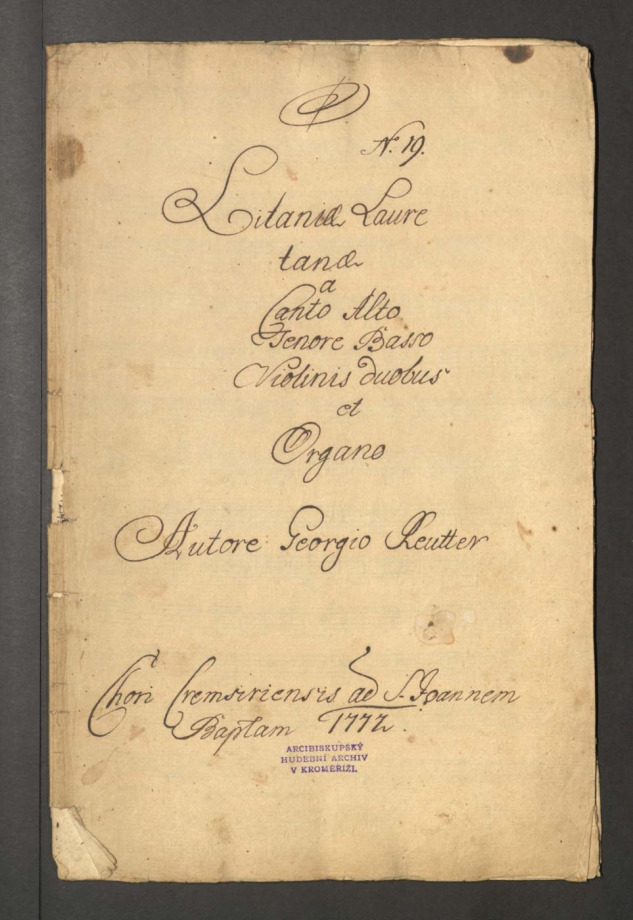 N. 19.
Litaniæ Laure
tanæ
a
Canto Alto
Tenore Basso
Violinis duobus
et
Organo
Autore Georgio Reutter
Chori Cremsiriensis ad S. Joannem
Baptam 1772.
ARCIBISKUPSKÝ
HUDEBNÍ ARCHIV
V KROMĚŘÍŽI.